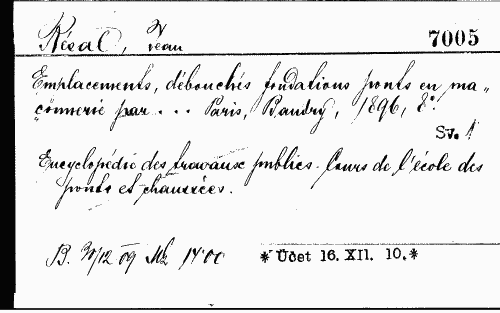 Résal, Jean 7005
Emplacements, débouchés fondations ponts en ma„
çonnerie par ... Paris, Baudry, 1896, 8°.
Sv. 1
Encyclopédie des travaux publics. Cours de l'école des
ponts et chaussées.
B. 30/12 09 Mk 14'00 *Účet 16. XII. 10.*